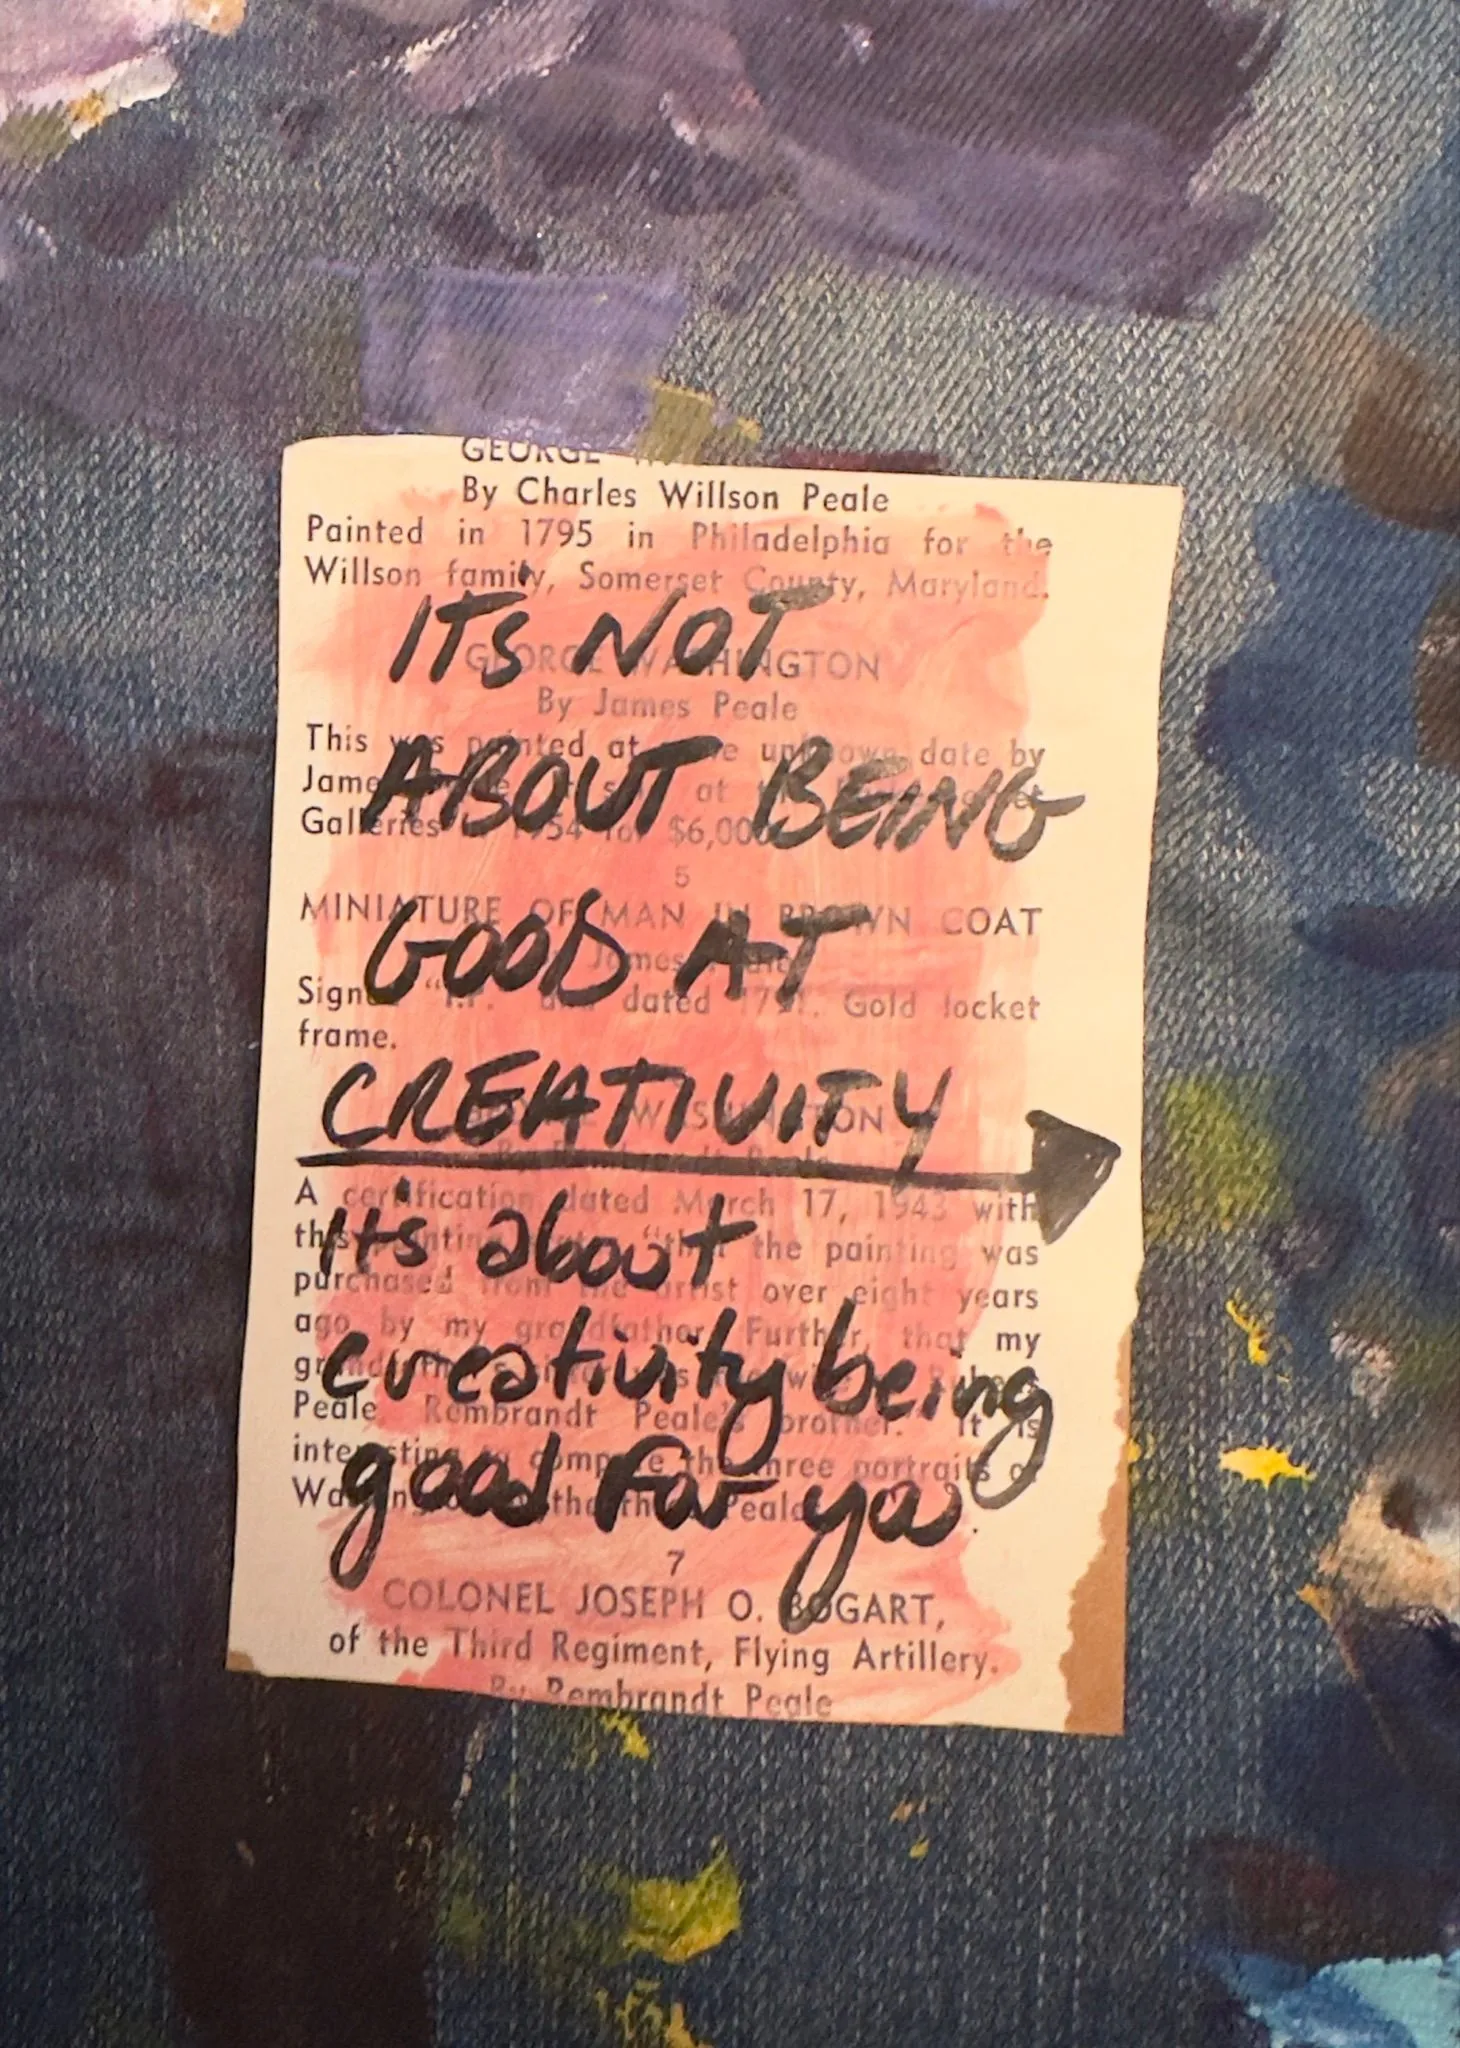 GEORGE
By Charles Willson Peale
Painted in 1795 in Philadelphia for the
Willson family, Somerset County, Maryland.
ITS NOT
GEORGE WASHINGTON
By James Peale
This was painted at unknown date by
ABOUT BEING
Galleries 1954 for $6,000
5
MINIATURE OF MAN IN BROWN COAT
GOOD AT
James
Signed dated Gold locket
frame.
CREATIVITY
WASHINGTON
A certification dated March 17, 1943 with
its about
this painting "that the painting was
purchased from the artist over eight years
ago by my grandfather. Further, that my
creativity being
Peale, Rembrandt Peale's brother." It is
interesting to compare the three portraits of
good for you
Peale
7
COLONEL JOSEPH O. BOGART,
of the Third Regiment, Flying Artillery.
By Rembrandt Peale